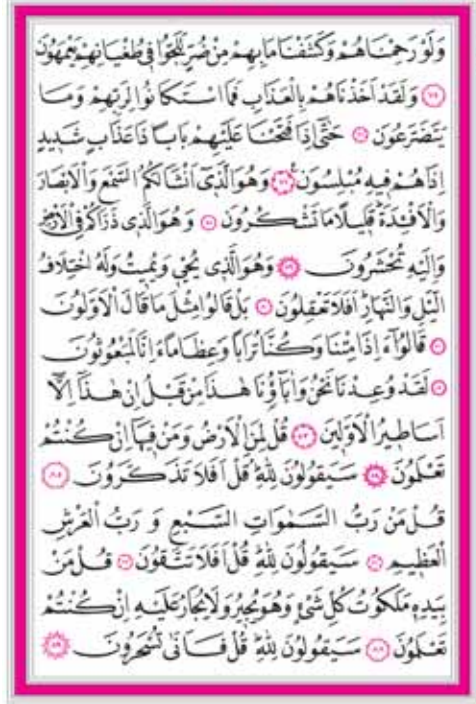 وَلَوْ رَحِمْنَاهُمْ وَكَشَفْنَا مَا بِهِمْ مِنْ ضُرٍّ لَلَجُّوا فِي طُغْيَانِهِمْ يَعْمَهُونَ
﴿٧٥﴾ وَلَقَدْ اَخَذْنَاهُمْ بِالْعَذَابِ فَمَا اسْتَكَانُوا لِرَبِّهِمْ وَمَا
يَتَضَرَّعُونَ ﴿٧٦﴾ حَتّٰٓى اِذَا فَتَحْنَا عَلَيْهِمْ بَابًا ذَا عَذَابٍ شَدِيدٍ
اِذَا هُمْ فِيهِ مُبْلِسُونَ ﴿٧٧﴾ وَهُوَ الَّذِٓي اَنْشَاَ لَكُمُ السَّمْعَ وَالْاَبْصَارَ
وَالْاَفْـِٔدَةَ قَلِيلًا مَا تَشْكُرُونَ ﴿٧٨﴾ وَهُوَ الَّذِي ذَرَاَكُمْ فِي الْاَرْضِ
وَاِلَيْهِ تُحْشَرُونَ ﴿٧٩﴾ وَهُوَ الَّذِي يُحْيِي وَيُمِيتُ وَلَهُ اخْتِلَافُ
الَّيْلِ وَالنَّهَارِ اَفَلَا تَعْقِلُونَ ﴿٨٠﴾ بَلْ قَالُوا مِثْلَ مَا قَالَ الْاَوَّلُونَ
﴿٨١﴾ قَالُٓوا ءَاِذَا مِتْنَا وَكُنَّا تُرَابًا وَعِظَامًا ءَاِنَّا لَمَبْعُوثُونَ
﴿٨٢﴾ لَقَدْ وُعِدْنَا نَحْنُ وَاٰبَٓاؤُ۬نَا هٰذَا مِنْ قَبْلُ اِنْ هٰذَٓا اِلَّٓا
اَسَاطِيرُ الْاَوَّلِينَ ﴿٨٣﴾ قُلْ لِمَنِ الْاَرْضُ وَمَنْ فِيهَٓا اِنْ كُنْتُمْ
تَعْلَمُونَ ﴿٨٤﴾ سَيَقُولُونَ لِلّٰهِ قُلْ اَفَلَا تَذَكَّرُونَ ﴿٨٥﴾
قُلْ مَنْ رَبُّ السَّمٰوَاتِ السَّبْعِ وَرَبُّ الْعَرْشِ
الْعَظِيمِ ﴿٨٦﴾ سَيَقُولُونَ لِلّٰهِ قُلْ اَفَلَا تَتَّقُونَ ﴿٨٧﴾ قُلْ مَنْ
بِيَدِهِ مَلَكُوتُ كُلِّ شَيْءٍ وَهُوَ يُجِيرُ وَلَا يُجَارُ عَلَيْهِ اِنْ كُنْتُمْ
تَعْلَمُونَ ﴿٨٨﴾ سَيَقُولُونَ لِلّٰهِ قُلْ فَاَنّٰى تُسْحَرُونَ ﴿٨٩﴾